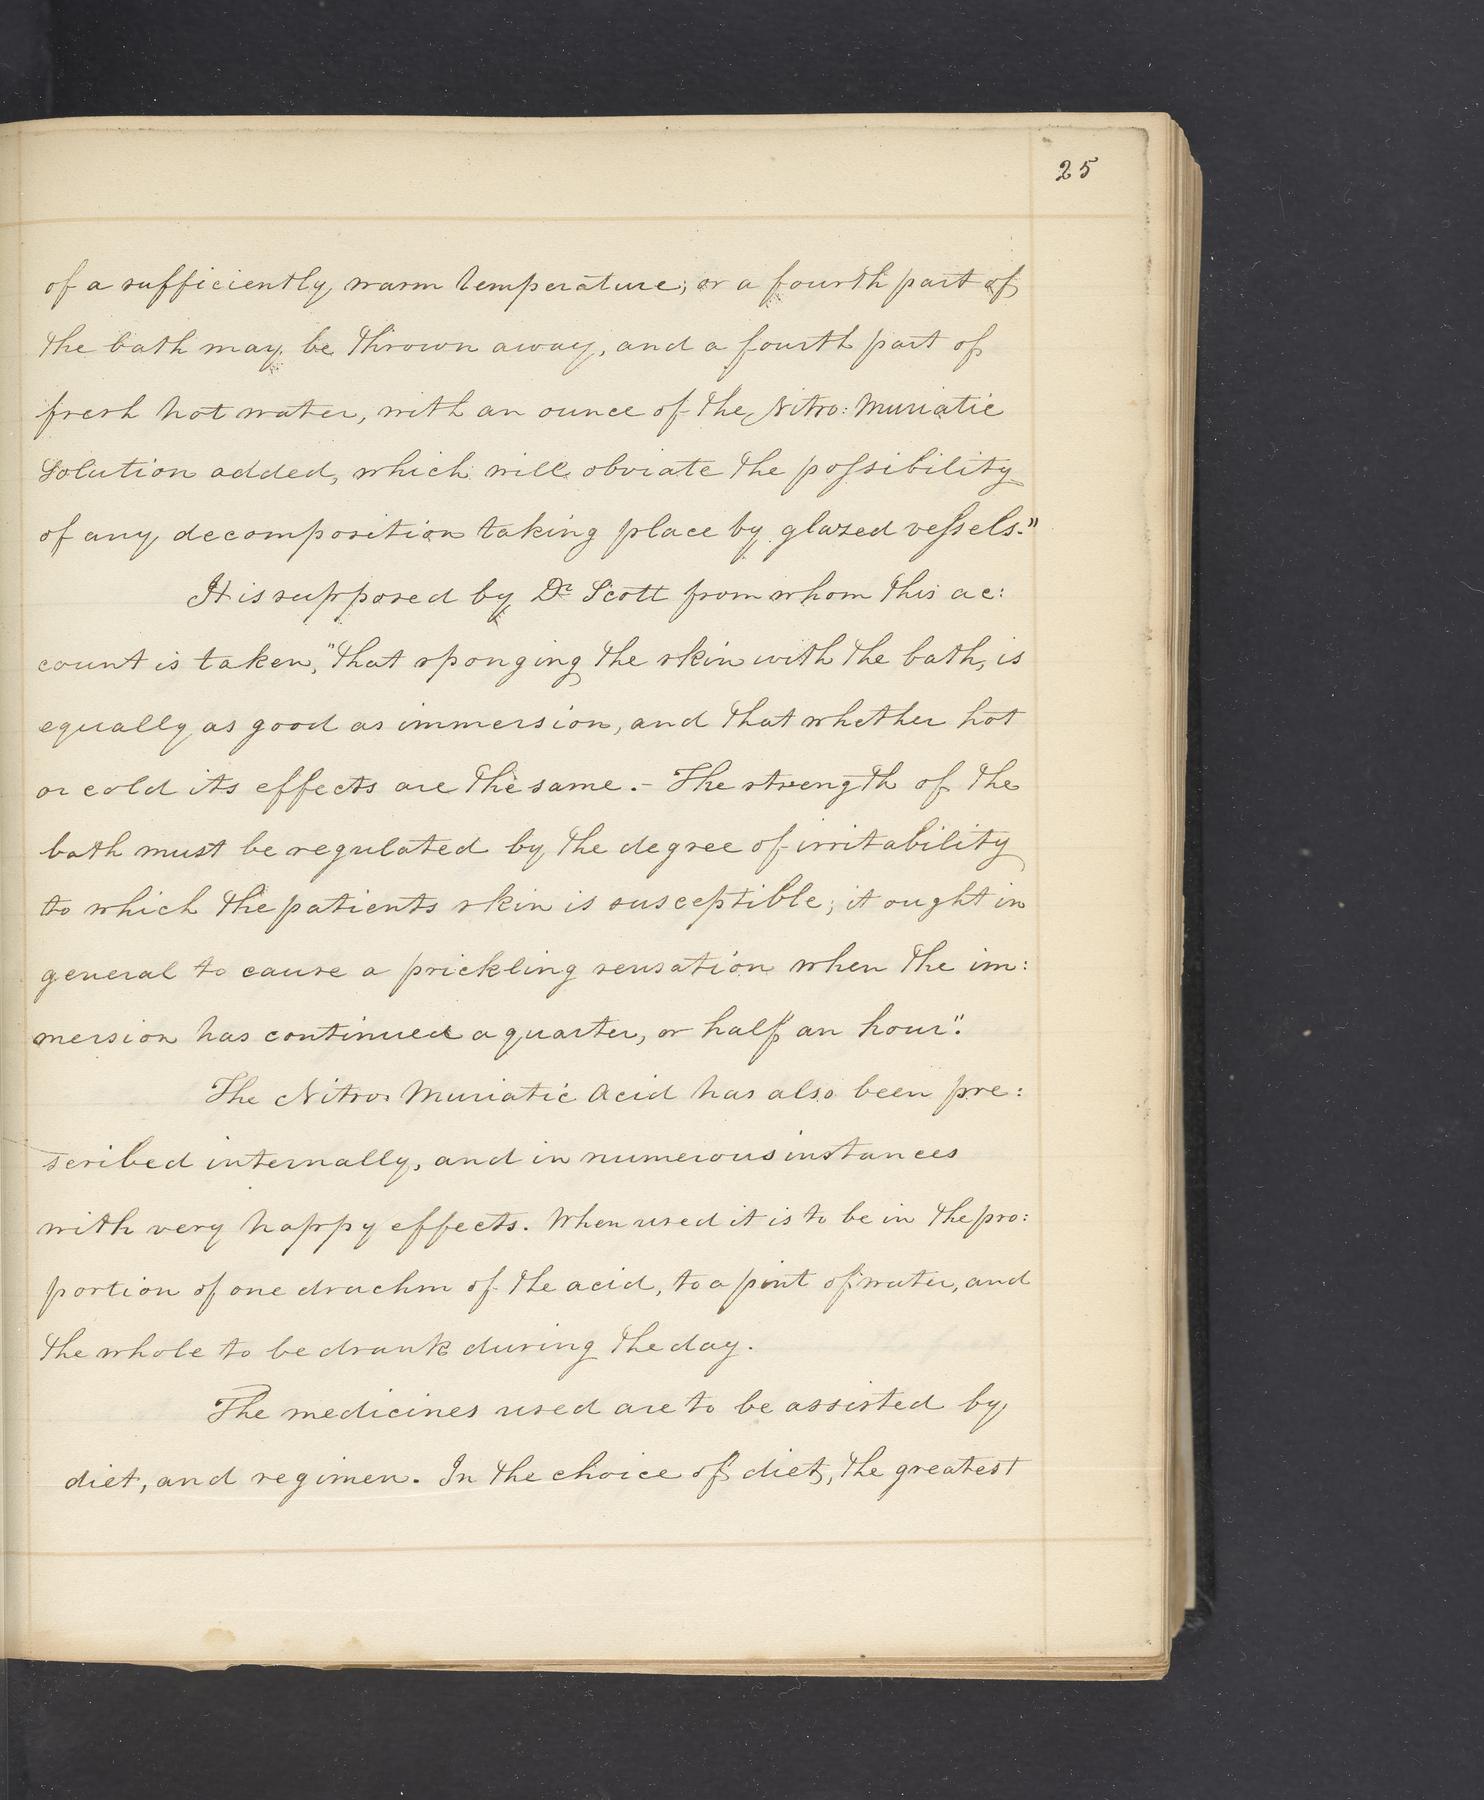 25
of a sufficiently warm temperature; or a fourth part of
the bath may be thrown away, and a fourth part of
fresh hot water, with an ounce of the Nitro: Muriatic
Solution added, which will obviate the poſsibility
of any decomposition taking place by glazed veſsels."
It is supposed by Dr Scott from whom this ac:
count is taken, "that sponging the skin with the bath, is
equally as good as immersion, and that whether hot
or cold its effects are the same. - The strength of the
bath must be regulated by the degree of irritability
to which the patients skin is susceptible; it ought in
general to cause a prickling sensation when the im:
mersion has continued a quarter, or half an hour".
The Nitro: Muriatic Acid has also been pre:
scribed internally, and in numerous instances
with very happy effects. When used it is to be in the pro:
portion of one drachm of the acid, to a pint of water, and
the whole to be drank during the day.
The medicines used are to be assisted by
diet, and regimen. In the choice of diet, the greatest